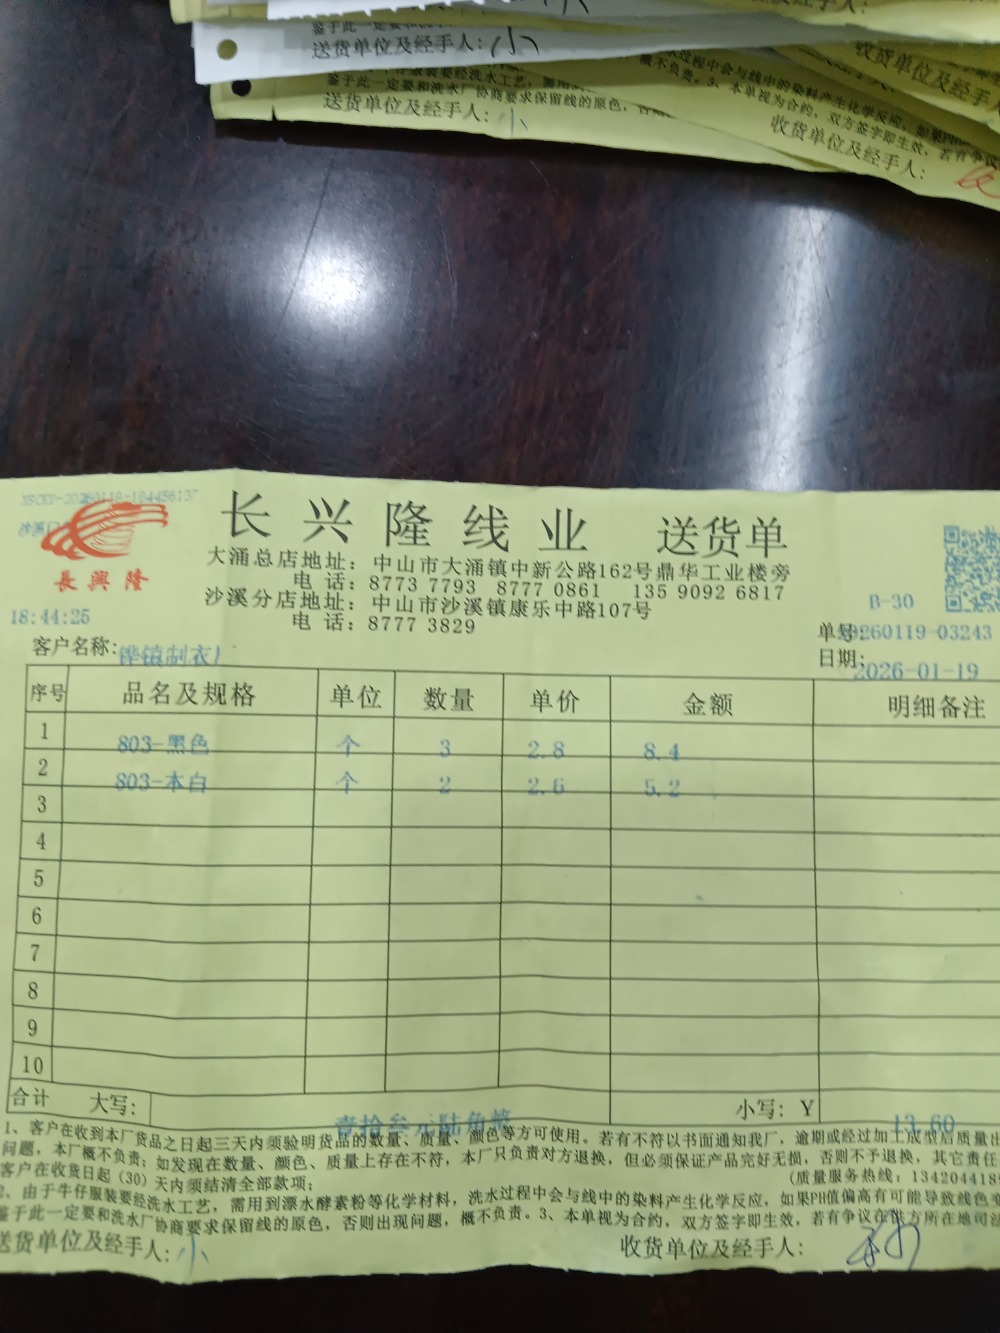 鉴于此一定要和洗
送货单位及经手人:小
收货单位及经手人:
服装要经洗水工艺,需用
鉴于此一定要和洗水厂协商要求保留线的原色,否则
送货单位及经手人:小
水过程中会与线中的染料产生化学反应,如果PH
概不负责。3、本单视为合约,双方签字即生效,若有争议
收货单位及经手人:
长兴隆线业 送货单
長興隆
大涌总店地址:中山市大涌镇中新公路162号鼎华工业楼旁
电 话:8773 7793 8777 0861 135 9092 6817
沙溪分店地址:中山市沙溪镇康乐中路107号
电 话:8777 3829
18:44:25
B-30
单号:20260119-03243
客户名称:铧镇制衣厂
日期:2026-01-19
序号 品名及规格 单位 数量 单价 金额 明细备注
1 803-黑色 个 3 2.8 8.4
2 803-本白 个 2 2.6 5.2
3
4
5
6
7
8
9
10
合计 大写: 壹拾叁元陆角整 小写:Y 13.60
1、客户在收到本厂货品之日起三天内须验明货品的数量、质量、颜色等方可使用。若有不符以书面通知我厂,逾期或经过加工成型后质量出
问题,本厂概不负责;如发现在数量、颜色、质量上存在不符,本厂只负责对方退换,但必须保证产品完好无损,否则不予退换,其它责任
客户在收货日起(30)天内须结清全部款项;
(质量服务热线:1342044189
2、由于牛仔服装要经洗水工艺,需用到漂水酵素粉等化学材料,洗水过程中会与线中的染料产生化学反应,如果PH值偏高有可能导致线色变
鉴于此一定要和洗水厂协商要求保留线的原色,否则出现问题,概不负责。3、本单视为合约,双方签字即生效,若有争议在供方所在地司法
送货单位及经手人:小
收货单位及经手人: